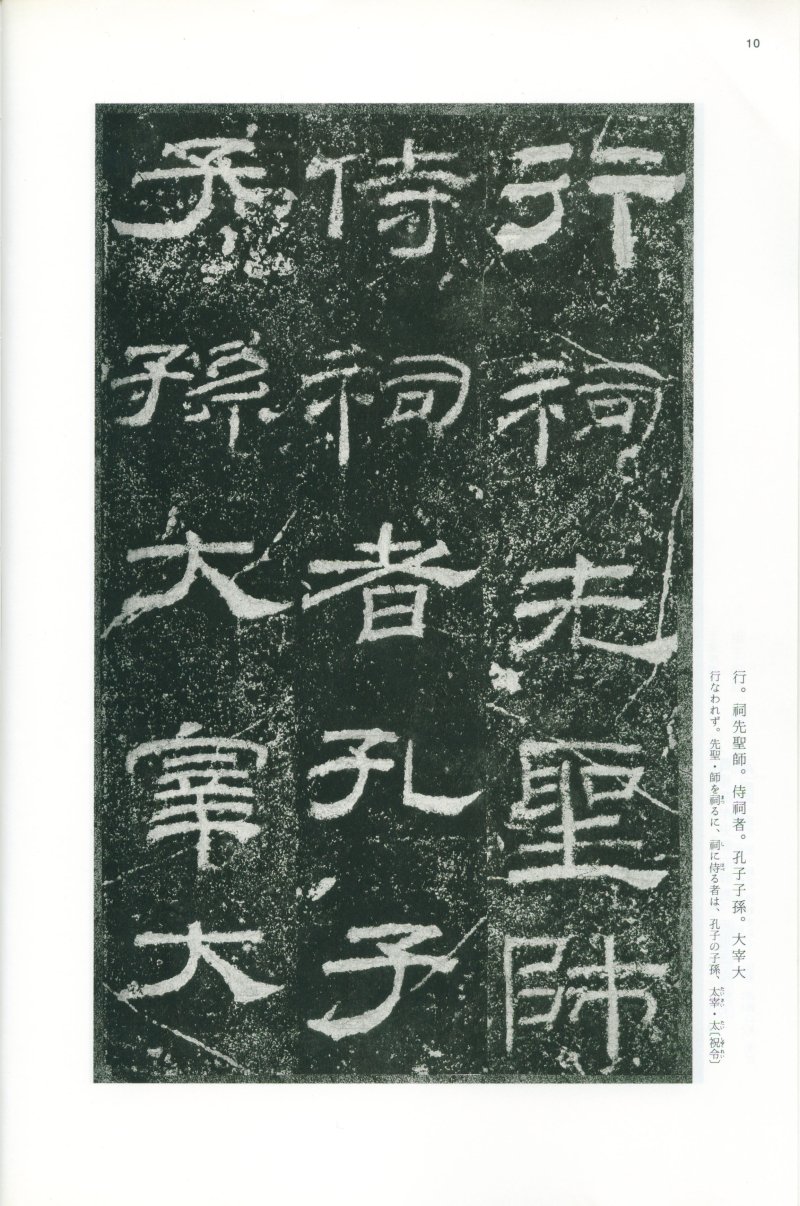 10
行祠先聖師
侍祠者孔子
子孫大宰大
行。祠先聖師。侍祠者。孔子子孫。大宰大
行なわれず。先聖・師を祠るに、祠に侍る者は、孔子の子孫、太宰・太〔祝令〕